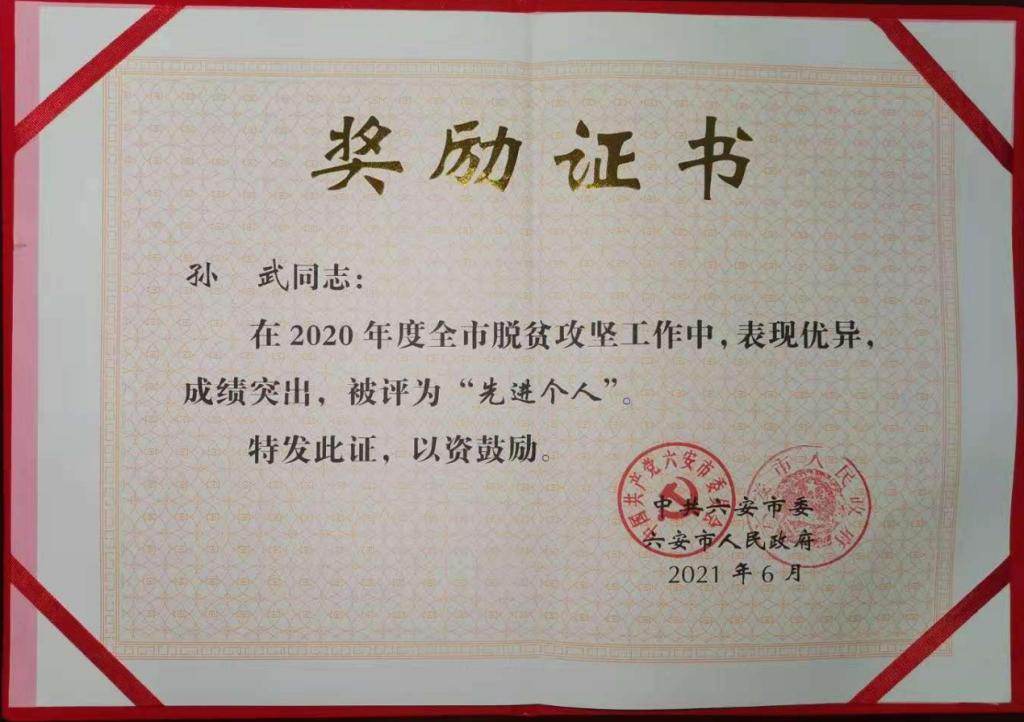 奖励证书
孙 武同志：
在2020年度全市脱贫攻坚工作中，表现优异，
成绩突出，被评为“先进个人”。
特发此证，以资鼓励。
中国共产党六安市委员会
六安市人民政府
中共六安市委
六安市人民政府
2021年6月